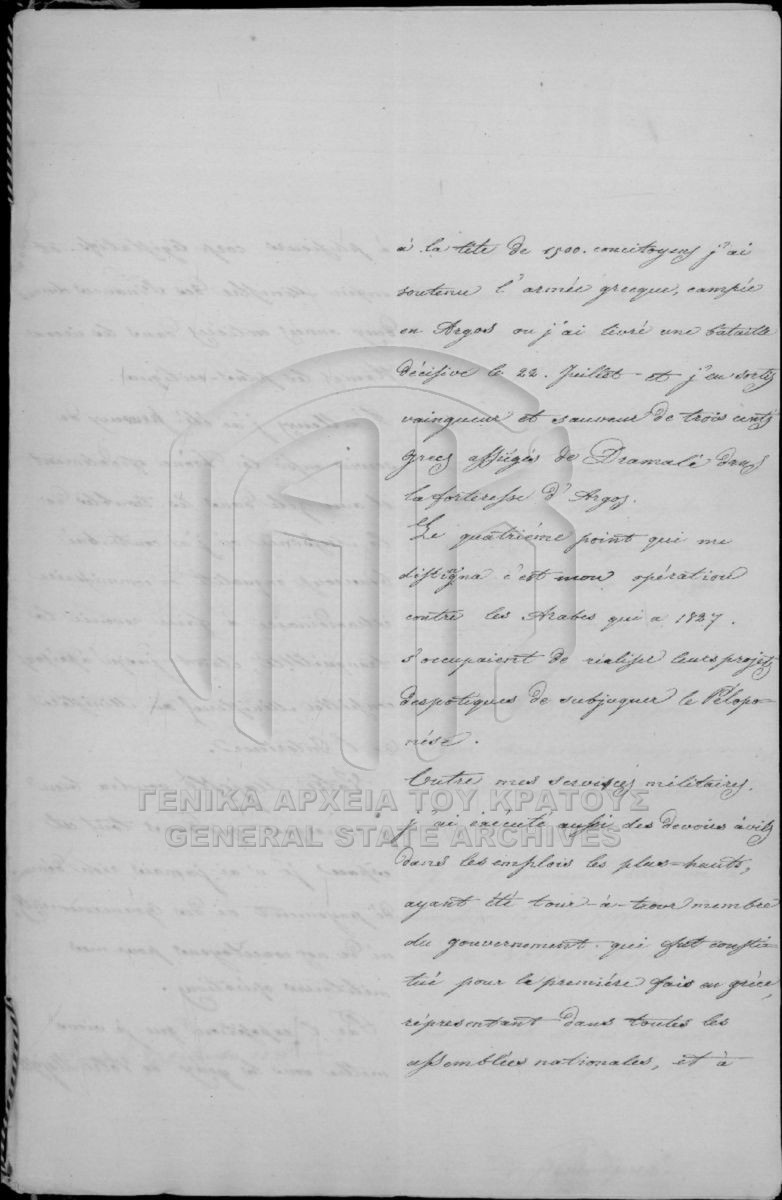 à la tête de 1500. concitoyens j'ai
soutenu l'armée grecque, campée
en Argos ou j'ai livré une bataille
décisive le 22. Juillet et j'en sortis
vainqueur et sauveur de trois cents
grecs assiégés de Dramalé dans
la forteresse d'Argos.
Le quatriéme point qui me
distigna c'est mon opération
contre les Arabes qui a 1827.
s'occupaient de réaliser leurs projets
despotiques de subjuguer le Pélopo-
nése.
Outre mes services militaires,
j'ai exécuté aussi des devoirs civils
dans les emplois les plus=hauts,
ayant été tour-à-tour membre
du gouvernement qui fut consti-
tué pour le premiére fois en grèce,
réprésentant dans toutes les
assemblées nationales, et à
ΓΕΝΙΚΑ ΑΡΧΕΙΑ ΤΟΥ ΚΡΑΤΟΥΣ
GENERAL STATE ARCHIVES